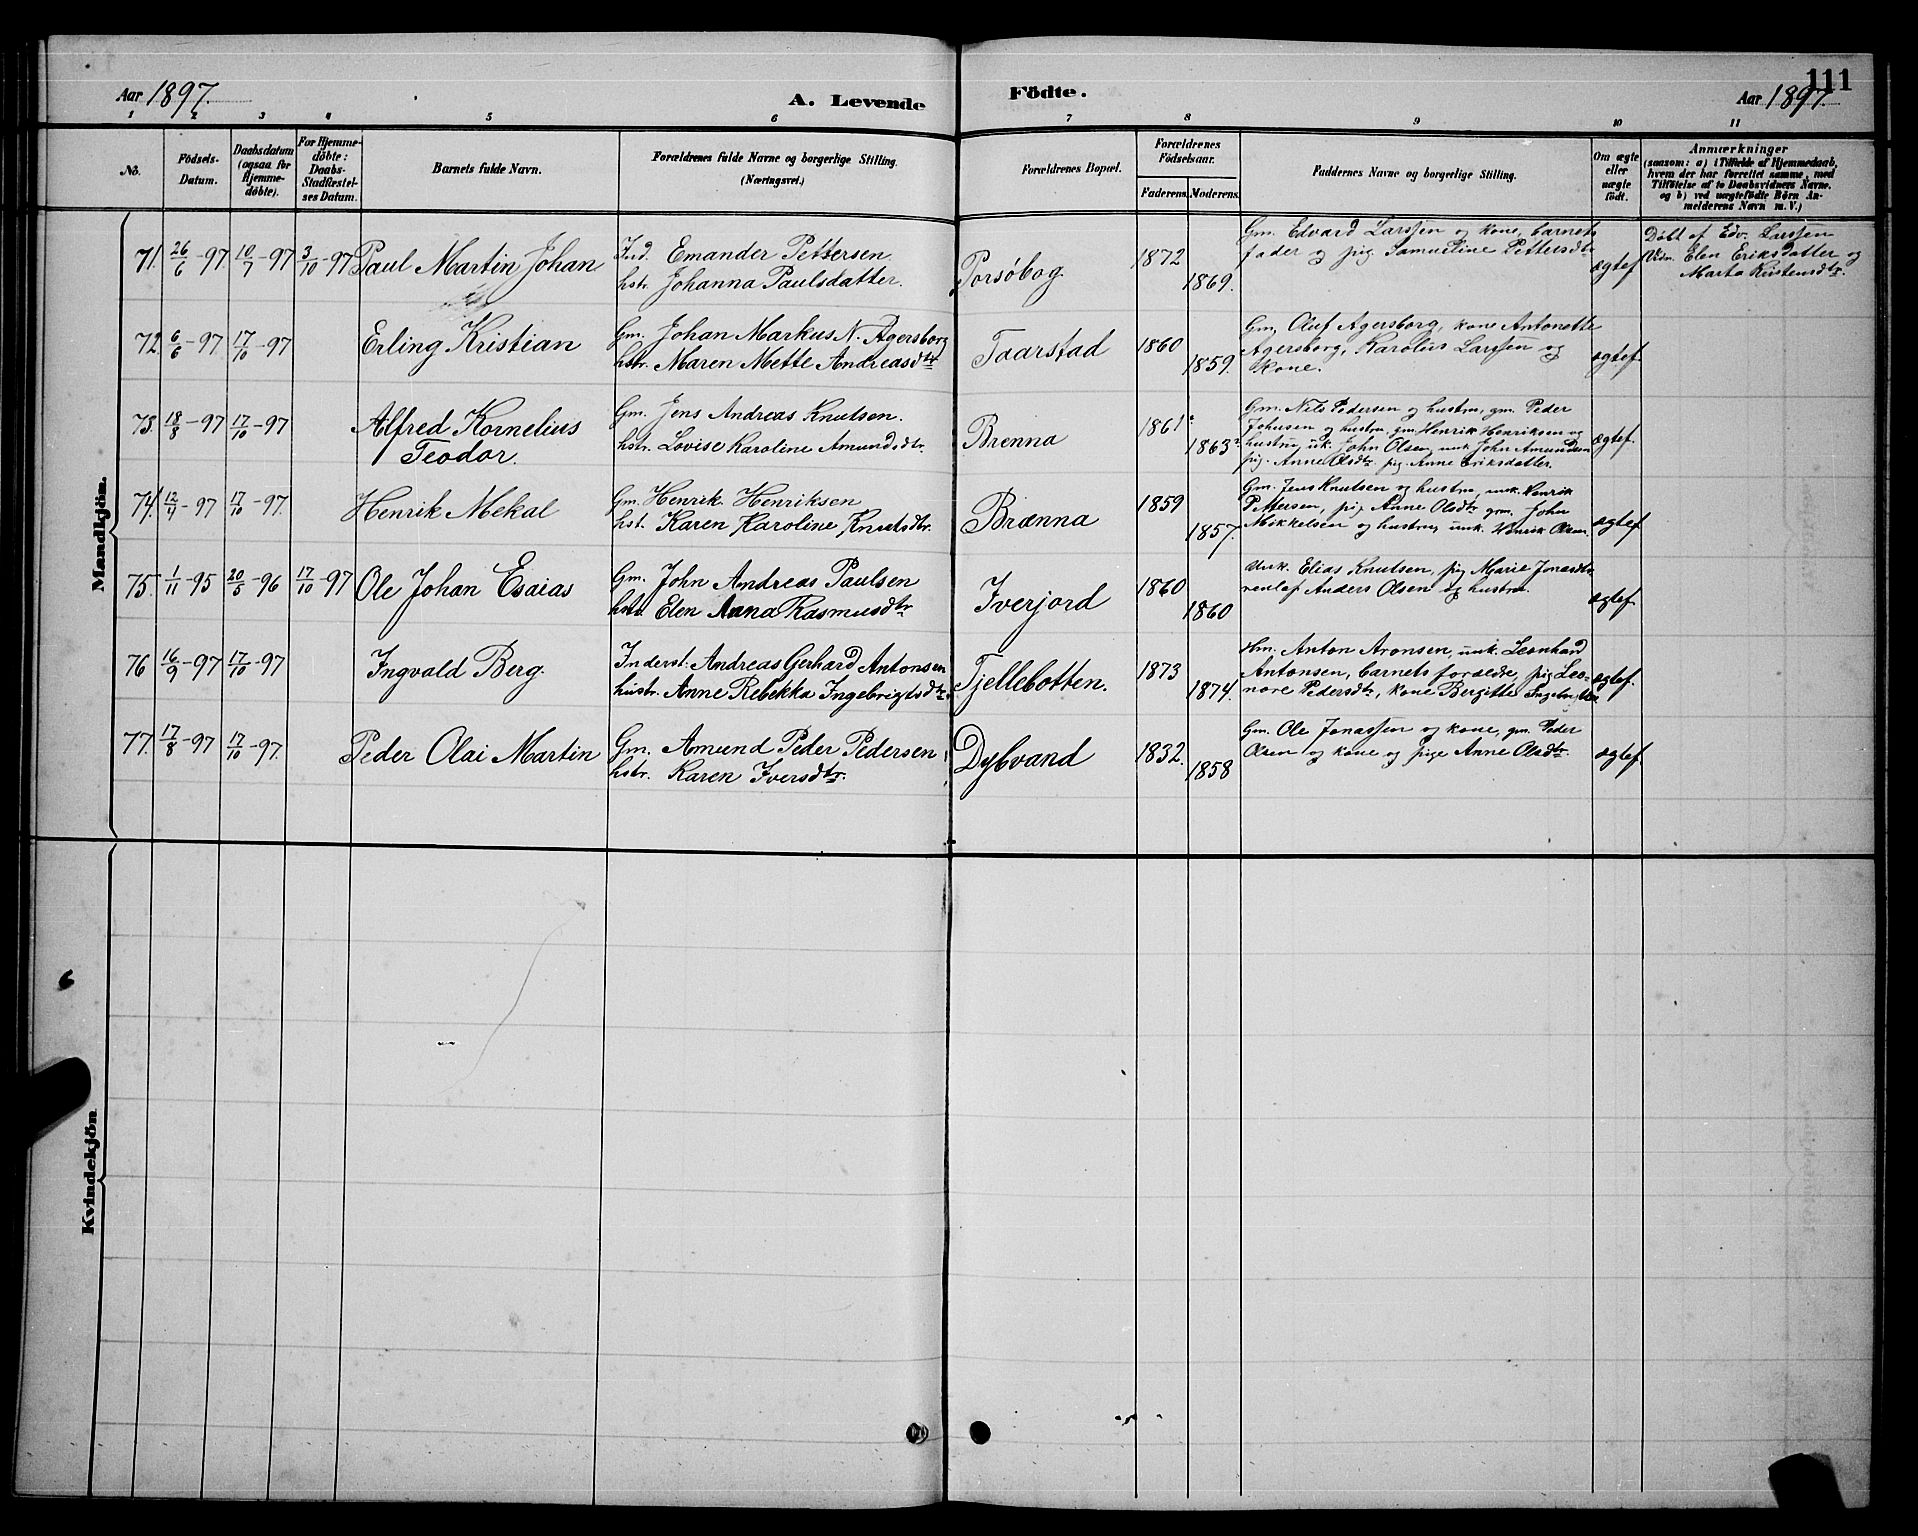 111
Aar 1897. A. Levende Födte. Aar 1897.
1 2 3 4 5 6 7 8 9 10 11
No.
Födsels-
Datum.
Daabsdatum
(ogsaa for
Hjemme-
döbte).
For Hjemme-
döbte:
Daabs-
Stadfæstel-
ses Datum.
Barnets fulde Navn.
Forældrenes fulde Navne og borgerlige Stilling.
(Næringsvei.)
Forældrenes Bopæl.
Forældrenes
Födselsaar.
Faderens. Moderens.
Faddernes Navne og borgerlige Stilling.
Om ægte
eller
uægte
födt.
Anmærkninger
(saasom: a) i Tilfælde af Hjemmedaab,
hvem der har forrettet samme, med
Tilföielse af to Daabsvidners Navne,
og b) ved uægtefödte Börn An-
melderens Navn m. V.)
Mandkjön.
71. 26/6-97 10/7-97 3/10-97 Paul Martin Johan
Ind. Emander Pettersen
hstr. Johanna Paulsdatter.
Porsøbog
1872
1869.
Gm. Edvard Larssen og kone, barnets
fader og pig. Samueline Pettersdtr
ægtef.
Døbt af Edv. Larssen
Vidn. Elen Eriksdatter og
Marta Kristensdtr.
72. 6/6-97 17/10-97 Erling Kristian
Gm. Johan Markus N. Agersborg
hstr. Maren Mette Andreasdtr
Taarstad
1860
1859.
Gm. Oluf Agersborg, kone Antonette
Agersborg, Karolius Larssen og
kone.
ægtef.
73. 18/8-97 17/10-97 Alfred Kornelius
Teodor.
Gm. Jens Andreas Knutsen.
hstr. Lovise Karoline Amundsdtr.
Brenna
1861
1863
Gm. Nils Pedersen og hustru, gm. Peder
Johnsen og hustru, gm. Henrik Henriksen og
hustru, uk. John Olsen, unk. John Amundsen
pig. Anne Olsdtr. pig. Anne Eriksdatter.
ægtef.
74. 12/9-97 17/10-97. Henrik Mekal
Gm. Henrik Henriksen
hst. Karen Karoline Knutsdtr.
Brænna
1859
1857.
Gm. Jens Knutsen og hustru, unk. Henrik
Pettersen, pig Anne Olsdtr gm. John
Mikkelsen og hustru, unk. Henrik Olsen.
ægtef.
75. 1/11-95 20/5-96 17/10-97 Ole Johan Esaias
Gm. John Andreas Paulsen
hstr. Elen Anna Rasmusdtr
Iverjord
1860
1860
Unk. Elias Knutsen, pig Marie Jonasdtr
Anders Olsen og hustru.
ægtef.
76 16/9-97 17/10-97 Ingvald Berg.
Inderst. Andreas Gerhard Antonsen
hustr. Anne Rebekka Ingebrigtsdtr.
Tjellebotten.
1873
1874.
Hm. Anton Aronsen, unk. Leonhard
Antonsen, barnets forældre, pig Leo-
nore Pedersdtr, kone Bergitte
ægtef.
77. 17/8-97 17/10-97. Peder Olai Martin
Gm. Amund Peder Pedersen
hstr. Karen Iversdtr.
Dybvand
1832.
1858
Gm. Ole Jonassen og kone, gm. Peder
Olsen og kone og pige Anne Olsdtr.
ægtef.
6
Kvindekjön